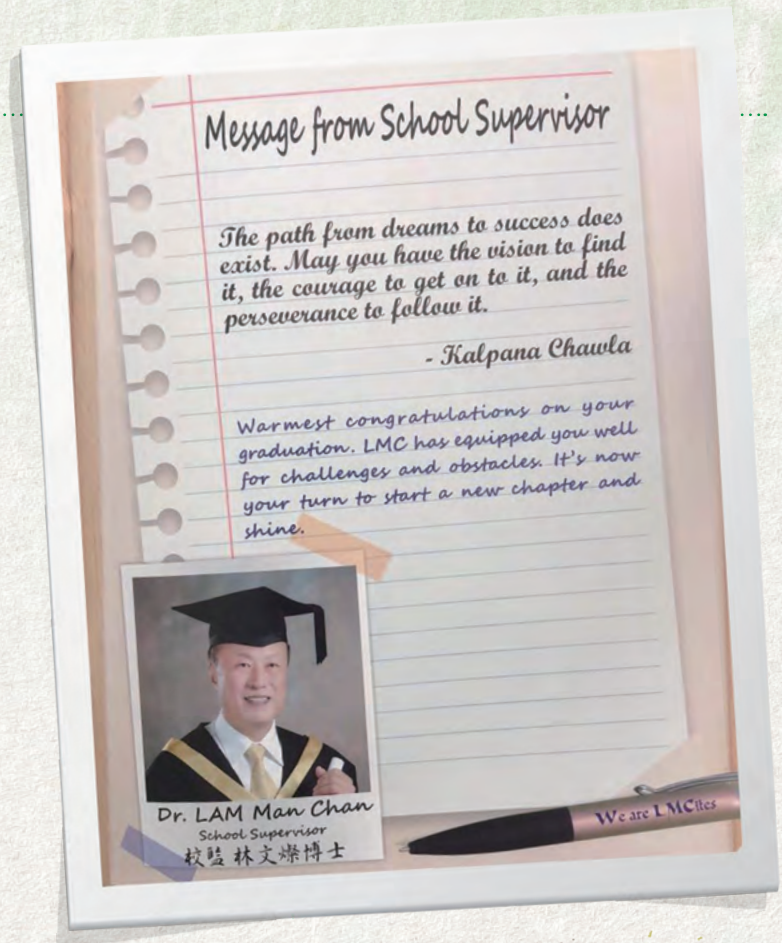 Message from School Supervisor
The path from dreams to success does
exist. May you have the vision to find
it, the courage to get on to it, and the
perseverance to follow it.
- Kalpana Chawla
Warmest congratulations on your
graduation. LMC has equipped you well
for challenges and obstacles. It's now
your turn to start a new chapter and
shine.
Dr. LAM Man Chan
School Supervisor
校監林文燦博士
We are LMCites